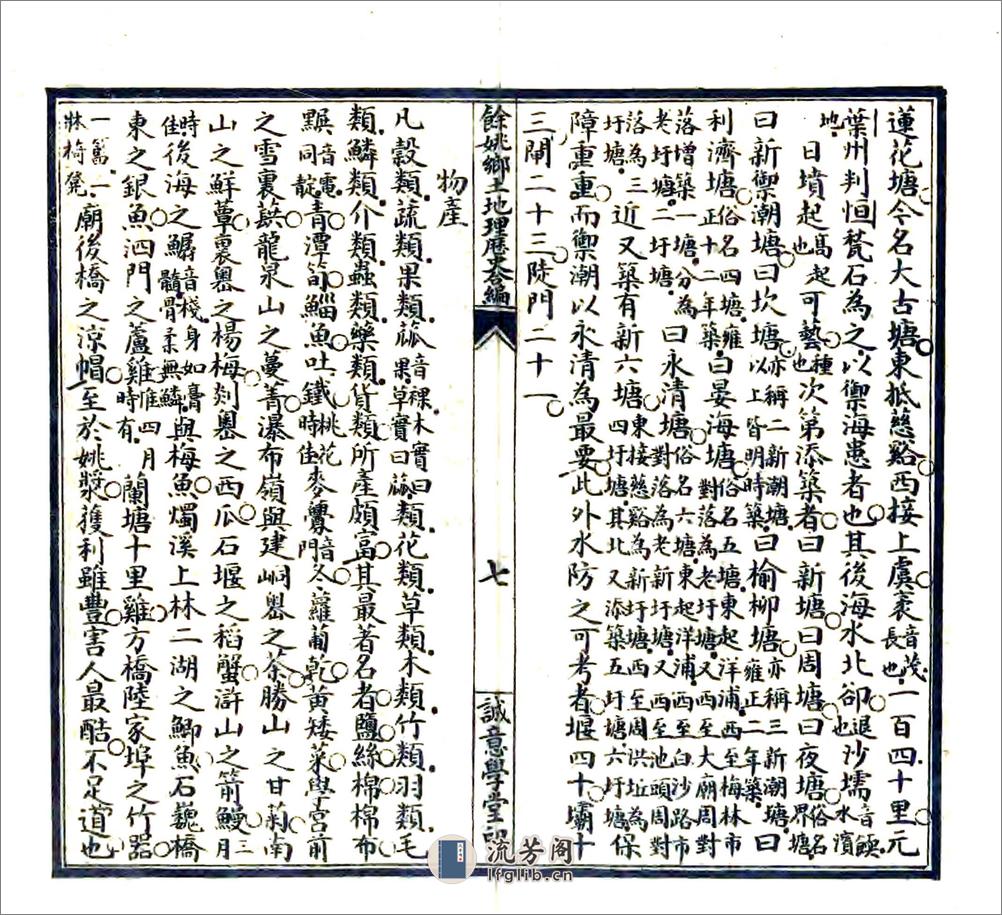 蓮花塘今名大古塘東抵慈谿西接上虞袤音茂長也一百四十里元
葉州判恒甃石為之以禦海患者也其後海水北卻退也沙壖音餪水濱
地日墳起高起也可藝種也次第添築者曰新塘曰周塘曰夜塘俗名界塘
曰新禦潮塘曰坎塘亦稱二新潮塘以上皆明時築曰榆柳塘亦稱三新潮塘雍正二年築曰
利濟塘俗名四塘雍正十二年築曰晏海塘俗名五塘東起洋浦西至梅林市對落為老圩塘又西至大廟周對
落增築一塘分為老圩塘二圩塘曰永清塘俗名六塘東起洋浦西至白沙路市對落為老新圩塘又西至池頭周對
落為三圩塘近又築有新六塘東接慈谿為新圩塘西至周洪坵為四圩塘其北又添築五圩塘六圩塘保
障重重而禦潮以永清為最要此外水防之可考者堰四十壩十
三閘二十三陡門二十一
餘姚鄉土地理歷史合編
七
誠意學堂印
物產
凡穀類蔬類果類蓏音裸木實曰果草實曰蓏類花類草類木類竹類羽類毛
類鱗類介類蟲類藥類貨類所產頗富其最著名者鹽絲棉棉布
靛音電同靛青潭笥鯔魚吐鐵桃花時佳麥虋音門冬蘿蔔乾黃矮菜學宮前
之雪裏蕻龍泉山之蔓菁瀑布嶺與建峒嶴之茶勝山之甘菊南
山之鮮蕈裏嶴之楊梅剡嶴之西瓜石堰之稻蟹滸山之箭鰻三月
時佳後海之鱴音棧身如膏髓骨柔無鱗與梅魚燭溪上林二湖之鯽魚石巍橋
東之銀魚泗門之蘆雞惟四月時有蘭塘十里雞方橋陸家埠之竹器
一篇二牀椅凳廟後橋之涼帽至於姚漿獲利雖豐害人最酷不足道也
流芳阁
lfglib.cn